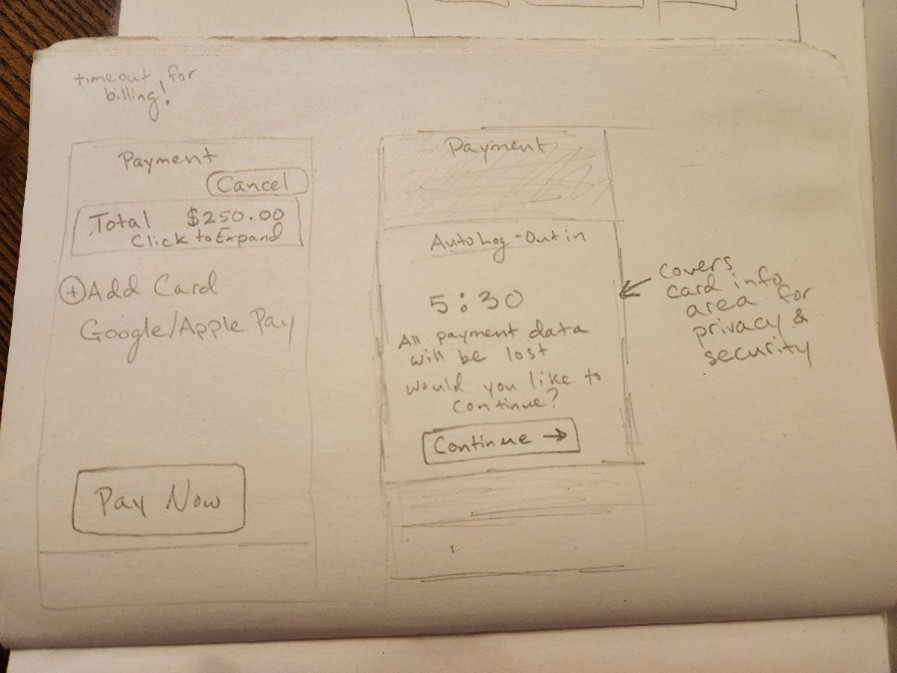 timeout for
billing!
Payment
Cancel
Total $250.00
Click to Expand
+ Add Card
Google/Apple Pay
Pay Now
Payment
Auto Log-Out in
5:30
All payment data
will be lost
would you like to
continue?
Continue →
Covers
card info
area for
privacy &
security